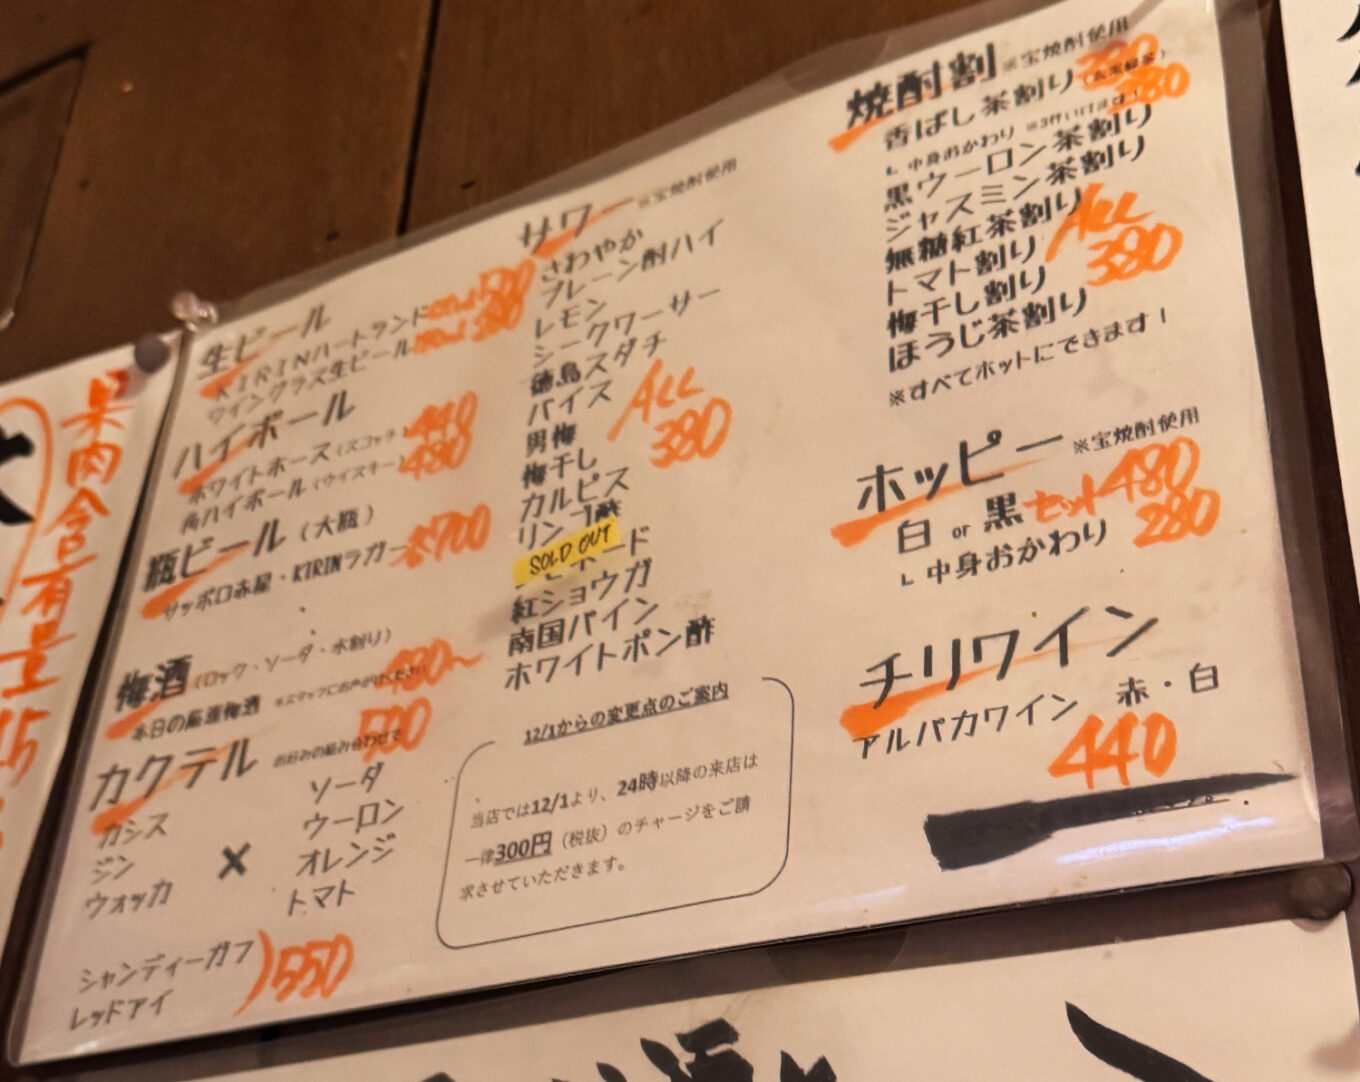 生ビール
KIRINハートランド
ワイングラス生ビール
ハイボール
ホワイトホース（スコッチ） 440
角ハイボール（ウイスキー） 480
瓶ビール（大瓶）
サッポロ赤星・KIRINラガー 各700
梅酒（ロック・ソーダ・水割り）
本日の厳選梅酒 ※スタッフにお声がけください 480〜
カクテル お好みの組み合わせで
カシス
ジン
ウォッカ
×
ソーダ
ウーロン
オレンジ
トマト
シャンディーガフ
レッドアイ
550
サワー ※宝焼酎使用
さわやか
プレーン酎ハイ
レモン
シークワーサー
徳島スダチ
バイス
男梅
梅干し
カルピス
リンゴ酢
SOLD OUT
紅ショウガ
南国パイン
ホワイトポン酢
ALL
380
12/1からの変更点のご案内
当店では12/1より、24時以降の来店は
一律300円（税抜）のチャージをご請
求させていただきます。
焼酎割 ※宝焼酎使用
香ばし茶割り
L 中身おかわり ※3杯いけます！
黒ウーロン茶割り
ジャスミン茶割り
無糖紅茶割り
トマト割り
梅干し割り
ほうじ茶割り
ALL
380
※すべてホットにできます！
ホッピー ※宝焼酎使用
白 or 黒 セット480
L 中身おかわり 280
チリワイン
アルパカワイン 赤・白
440
果肉含有量